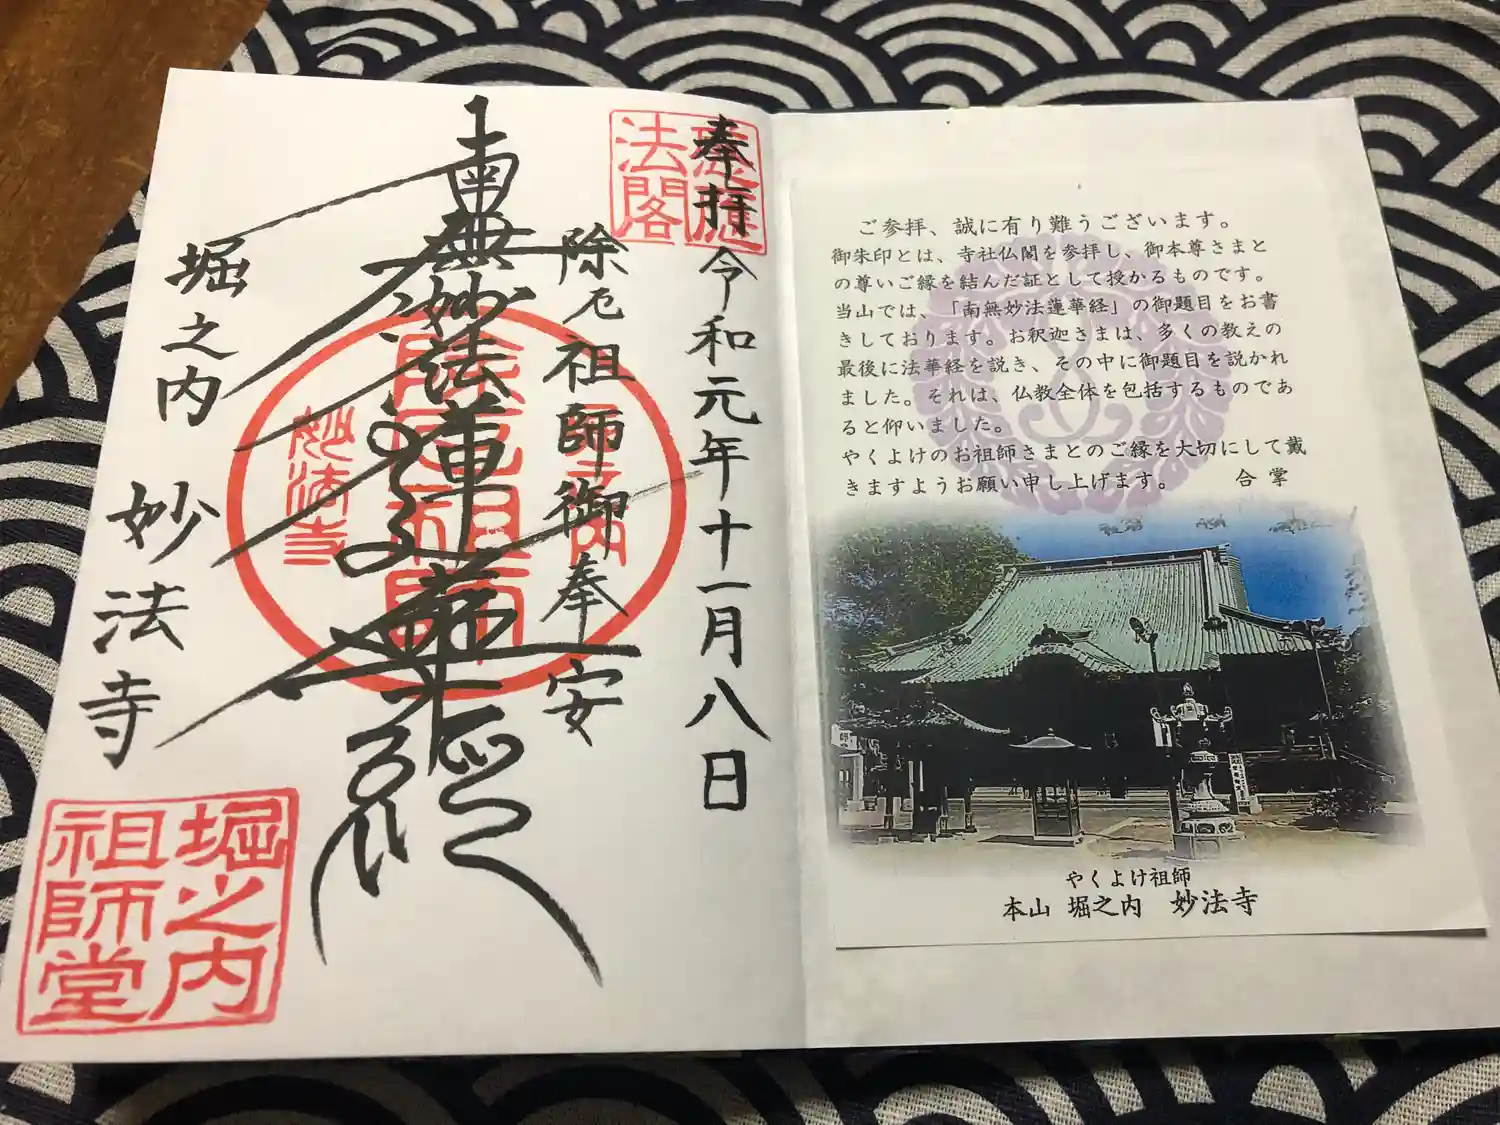 奉拝 令和元年十一月八日
除厄祖師御奉安
南無妙法蓮華経
堀之内 妙法寺
法閣
除厄祖師
妙法寺
堀之内
祖師堂
ご参拝、誠に有り難うございます。
御朱印とは、寺社仏閣を参拝し、御本尊さまと
の尊いご縁を結んだ証として授かるものです。
当山では、「南無妙法蓮華経」の御題目をお書
きしております。お釈迦さまは、多くの教えの
最後に法華経を説き、その中に御題目を説かれ
ました。それは、仏教全体を包括するものであ
ると仰いました。
やくよけのお祖師さまとのご縁を大切にして戴
きますようお願い申し上げます。 合掌
やくよけ祖師
本山 堀之内 妙法寺